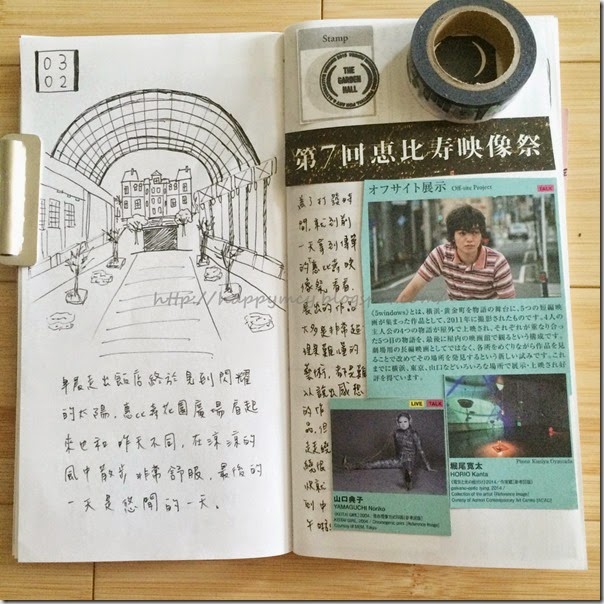 03
02
早晨走出飯店終於見到閃耀
的太陽，惠比壽花園廣場看起
來也和昨天不同，在涼涼的
風中散步非常舒服，最後的
一天是悠閒的一天。
http://happymey.blogsp
Stamp
THE
GARDEN
HALL
第7回恵比寿映像祭
為了打發時
間，就到前
一天拿到傳單
的惠比壽映
像祭看看，
展出的作品
大多是非常超
現實難懂的
藝術，都是難
以說出感想
的作品，但
是走走
繞繞
很快就
到中
午啦！
オフサイト展示 Off-site Project
TALK
《5windows》とは、横浜・黄金町を物語の舞台に、5つの短編映
画が集まった作品として、2011年に撮影されたものです。4人の
主人公の4つの物語が屋外で上映され、それぞれが重なり合っ
た5つ目の物語を、最後に屋内の映画館で観るという構成です。
劇場用の長編映画としてではなく、各所をめぐりながら作品を見
ることで改めてその場所を発見するという新しい試みです。これ
までに横浜、東京、山口などいろいろな場所で展示・上映され好
評を得ています。
LIVE TALK
山口典子
YAMAGUCHI Noriko
Photo: Kuniya Oyamada
堀尾寛太
HORIO Kanta